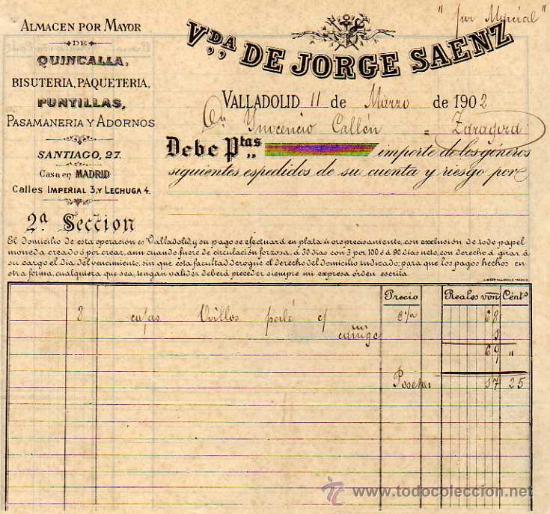 " por Mercial "
ALMACEN POR MAYOR
DE
QUINCALLA,
BISUTERIA, PAQUETERIA,
PUNTILLAS,
PASAMANERIA Y ADORNOS
SANTIAGO, 27.
Casa en MADRID
Calles IMPERIAL 3, Y LECHUGA 4.
2ª SECCION
V.DA DE JORGE SAENZ
VALLADOLID 11 de Marzo de 1902
Dn Inocencio Callén = Zaragoza
Debe Ptas „ importe de los géneros
siguientes espedidos de su cuenta y riesgo por
El domicilio de esta operacion es Valladolid, y su pago se efectuará en plata ú oro precisamente, con esclusion de todo papel
moneda creado ó por crear, aun cuando fuere de circulacion forzosa, á 30 dias con 3 por 100 ó 90 dias neto, con derecho á girar á
su cargo el dia del vencimiento, sin que esta facultad derogue el derecho del domicilio indicado; para que los pagos hechos en
otra forma, cualquiera que sea, tengan validez deberá preceder siempre mi espresa órden escrita
Precio Reales von Cents
2 cajas Ovillos perlé
69 "
Pesetas 17 25
todocoleccion
www.todocoleccion.net